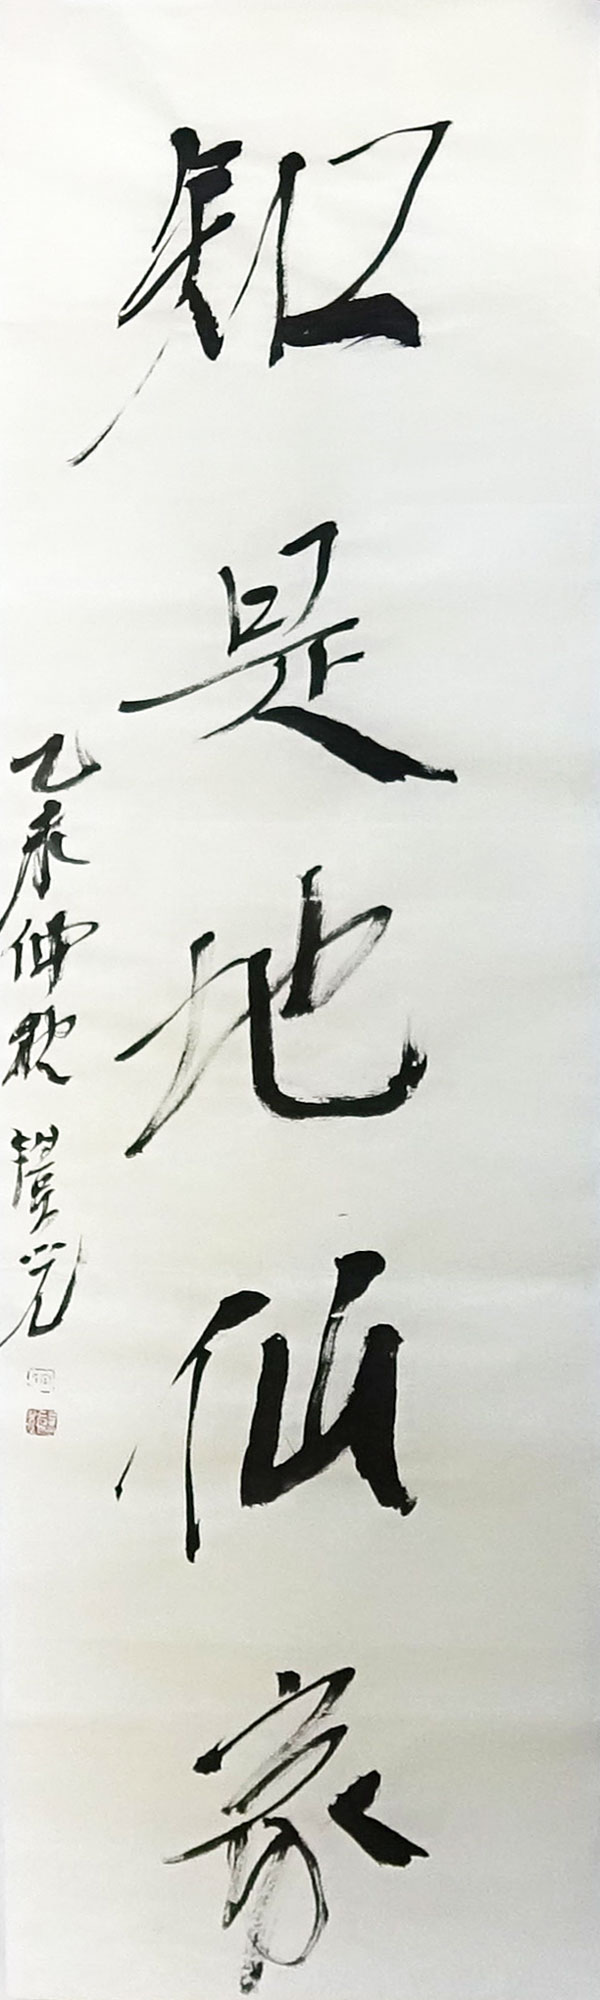 知是地仙家
乙未仲秋